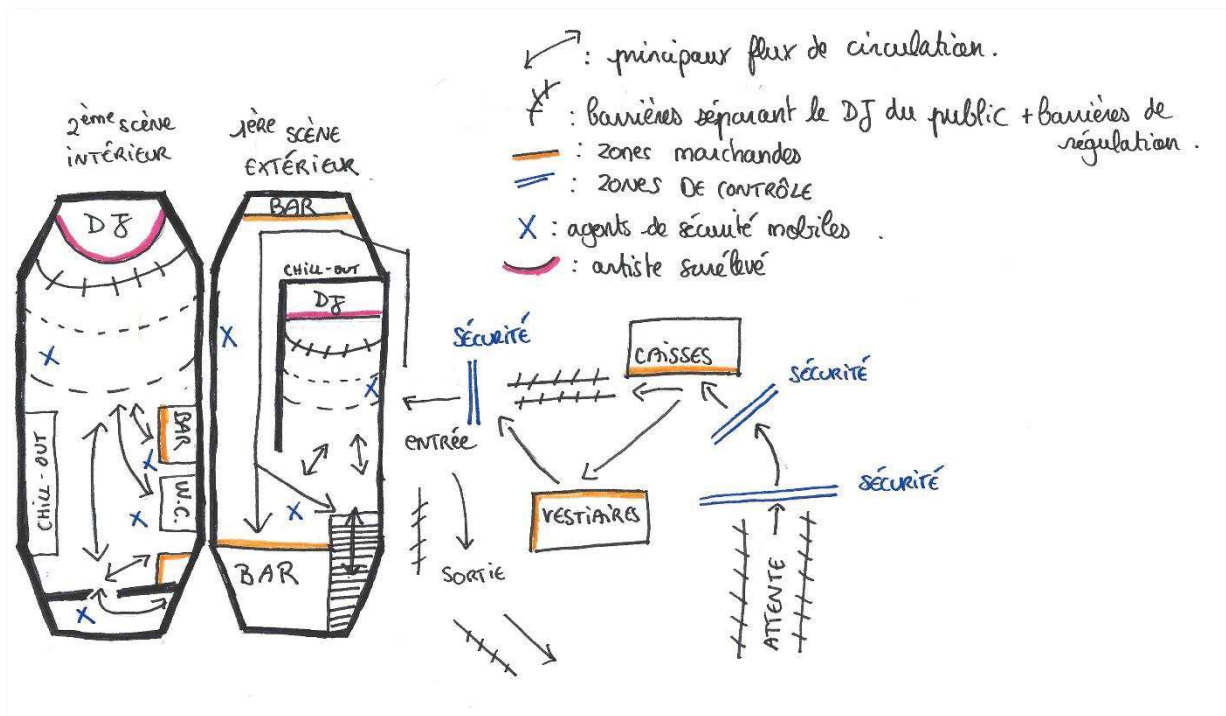 : principaux flux de circulation.
: barrières séparant le DJ du public + barrières de
régulation.
: zones marchandes
: ZONES DE CONTRÔLE
X : agents de sécurité mobiles.
: artiste surélevé
2ème scène
INTÉRIEUR
1ÈRE SCÈNE
EXTÉRIEUR
DJ
BAR
CHILL-OUT
DJ
CHILL-OUT
BAR
W.C.
BAR
SÉCURITÉ
ENTRÉE
SORTIE
CAISSES
VESTIAIRES
SÉCURITÉ
SÉCURITÉ
ATTENTE